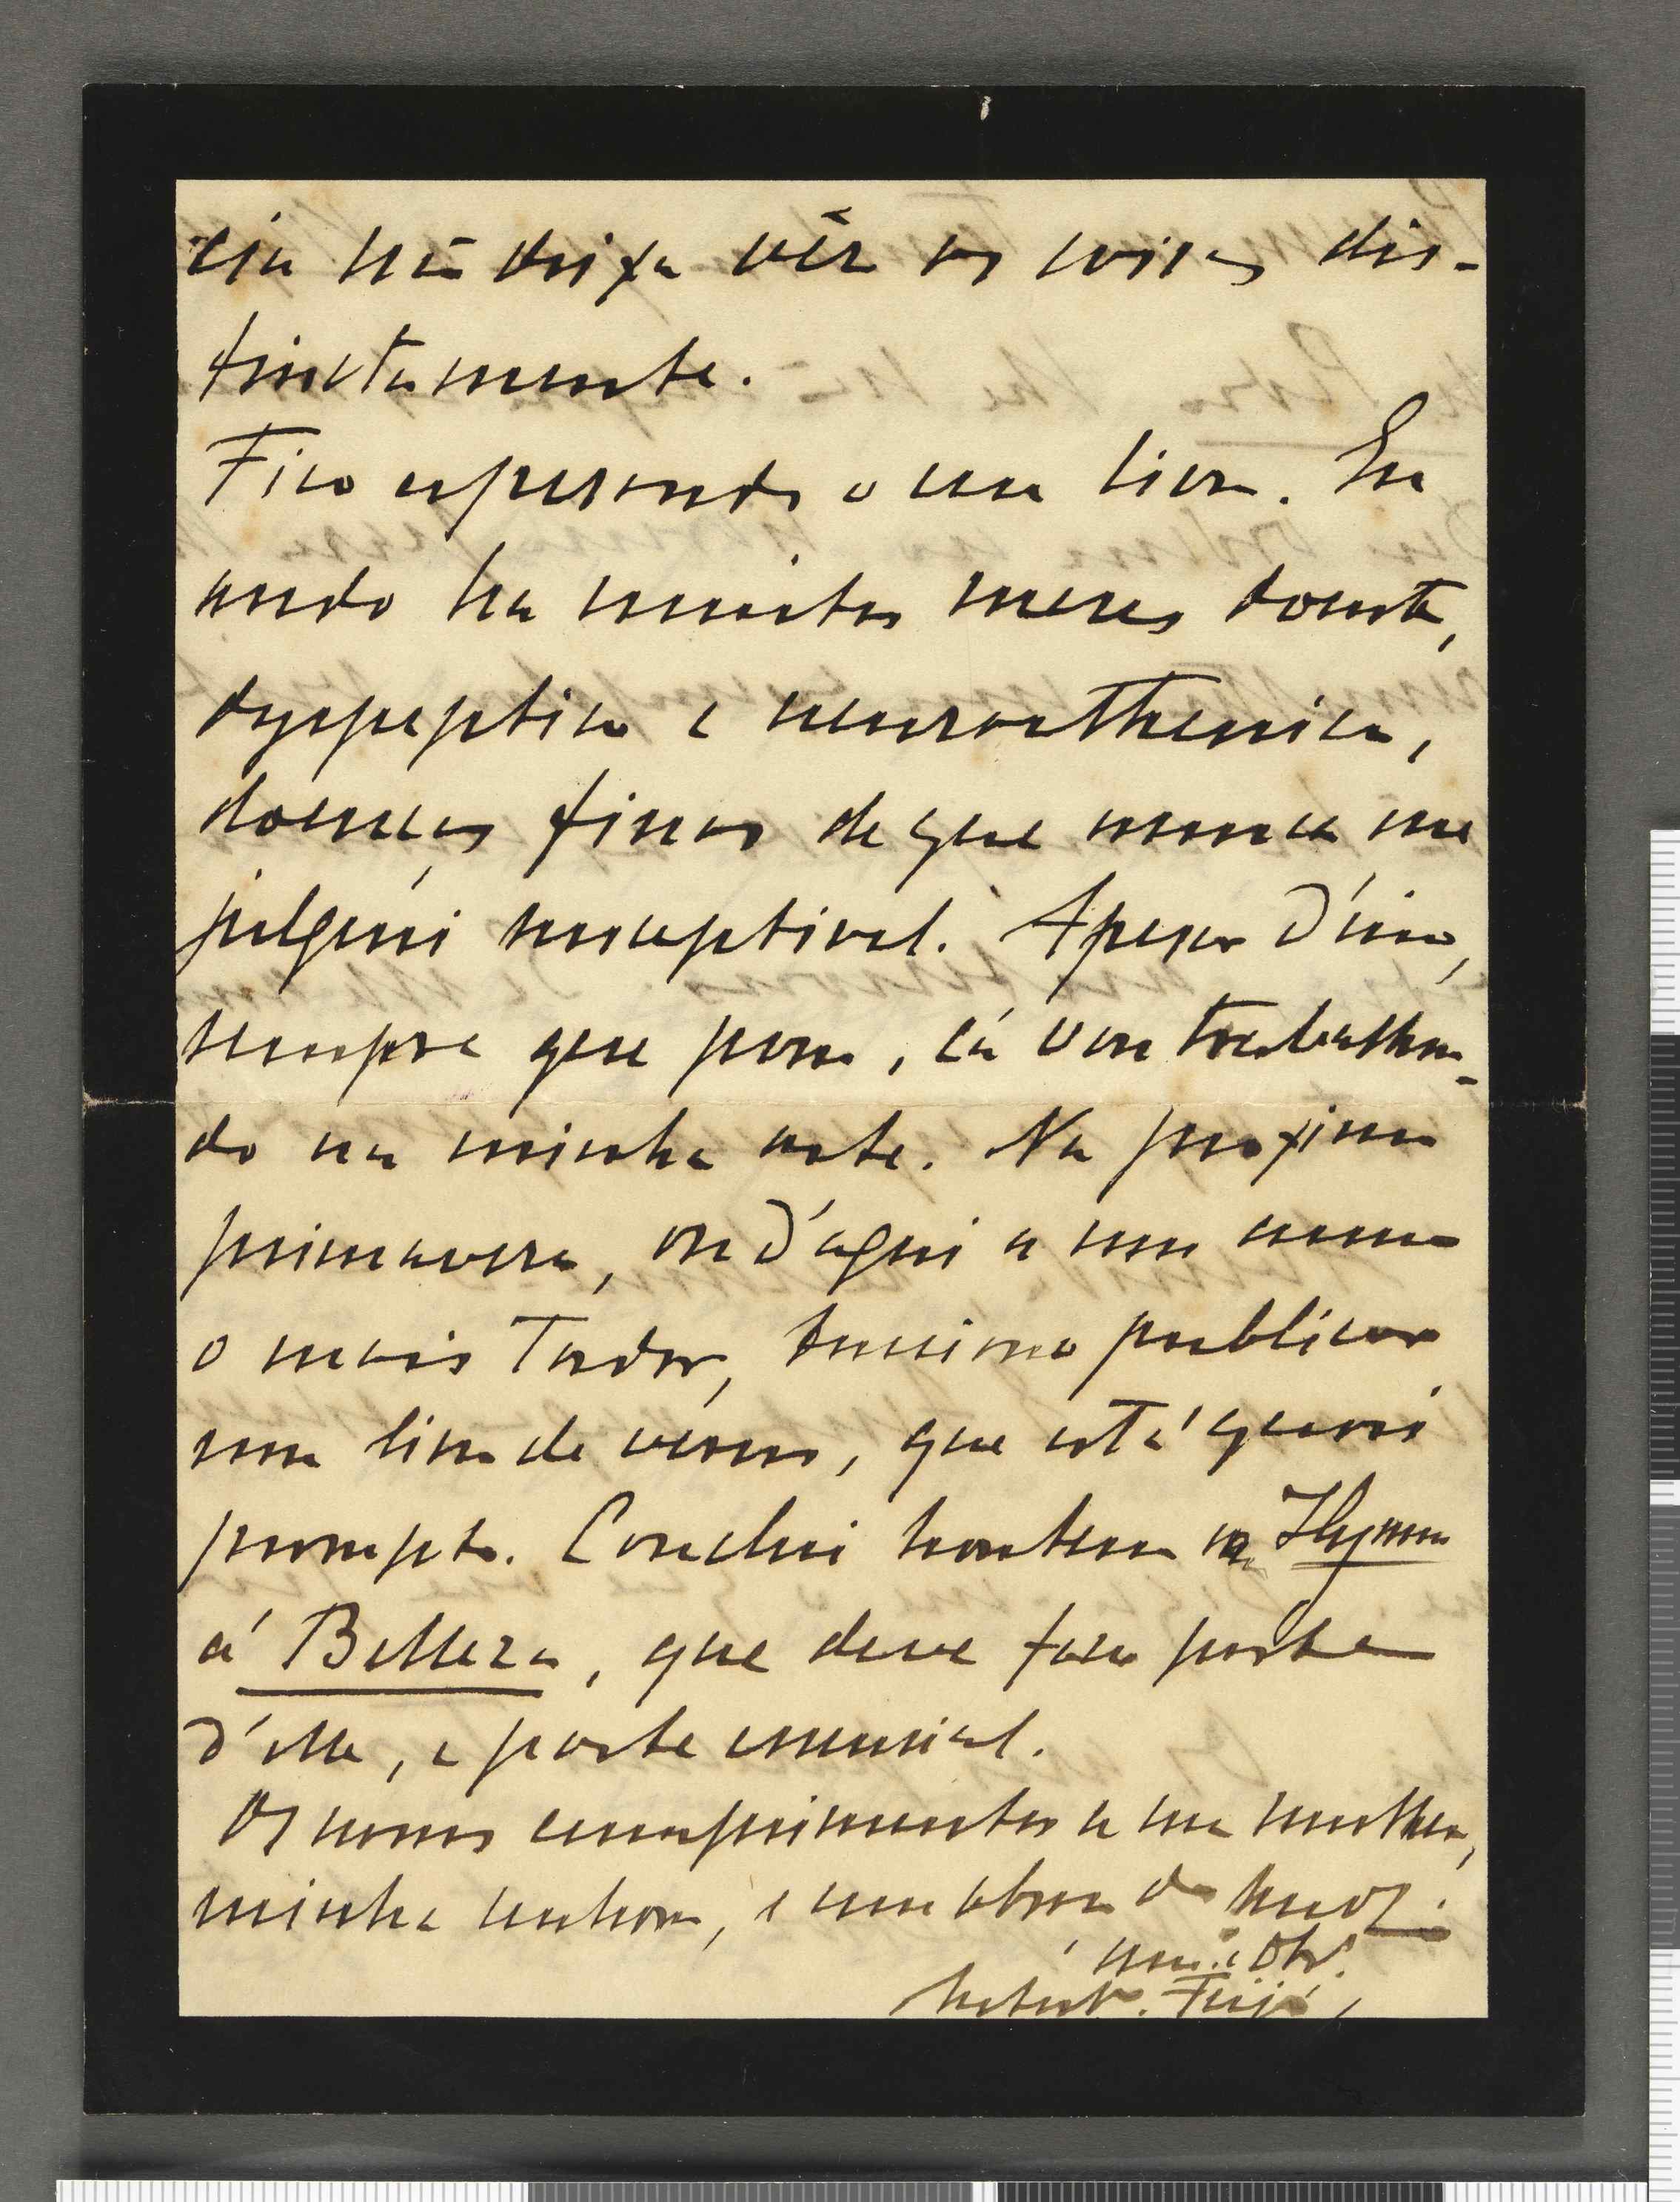 cia não deixa vêr as coisas dis-
tinctamente.
Fico esperando o seu livro. Eu
ando ha muitos meses doente,
dyspeptico e neurasthenico,
doenças finas de que nunca me
julguei susceptivel. Apesar d'isso,
sempre que posso, cá vou trabalhan-
do na minha arte. Na proxima
primavera, ou d'aqui a um anno
o mais tardar, tenciono publicar
um livro de versos, que está quasi
prompto. Conclui hontem o Hymno
á Belleza, que deve fazer parte
d'elle, e parte essencial.
Os nossos cumprimentos a sua mulher,
minha senhora, e um abraço do
am.º e Obr.º
Feijó